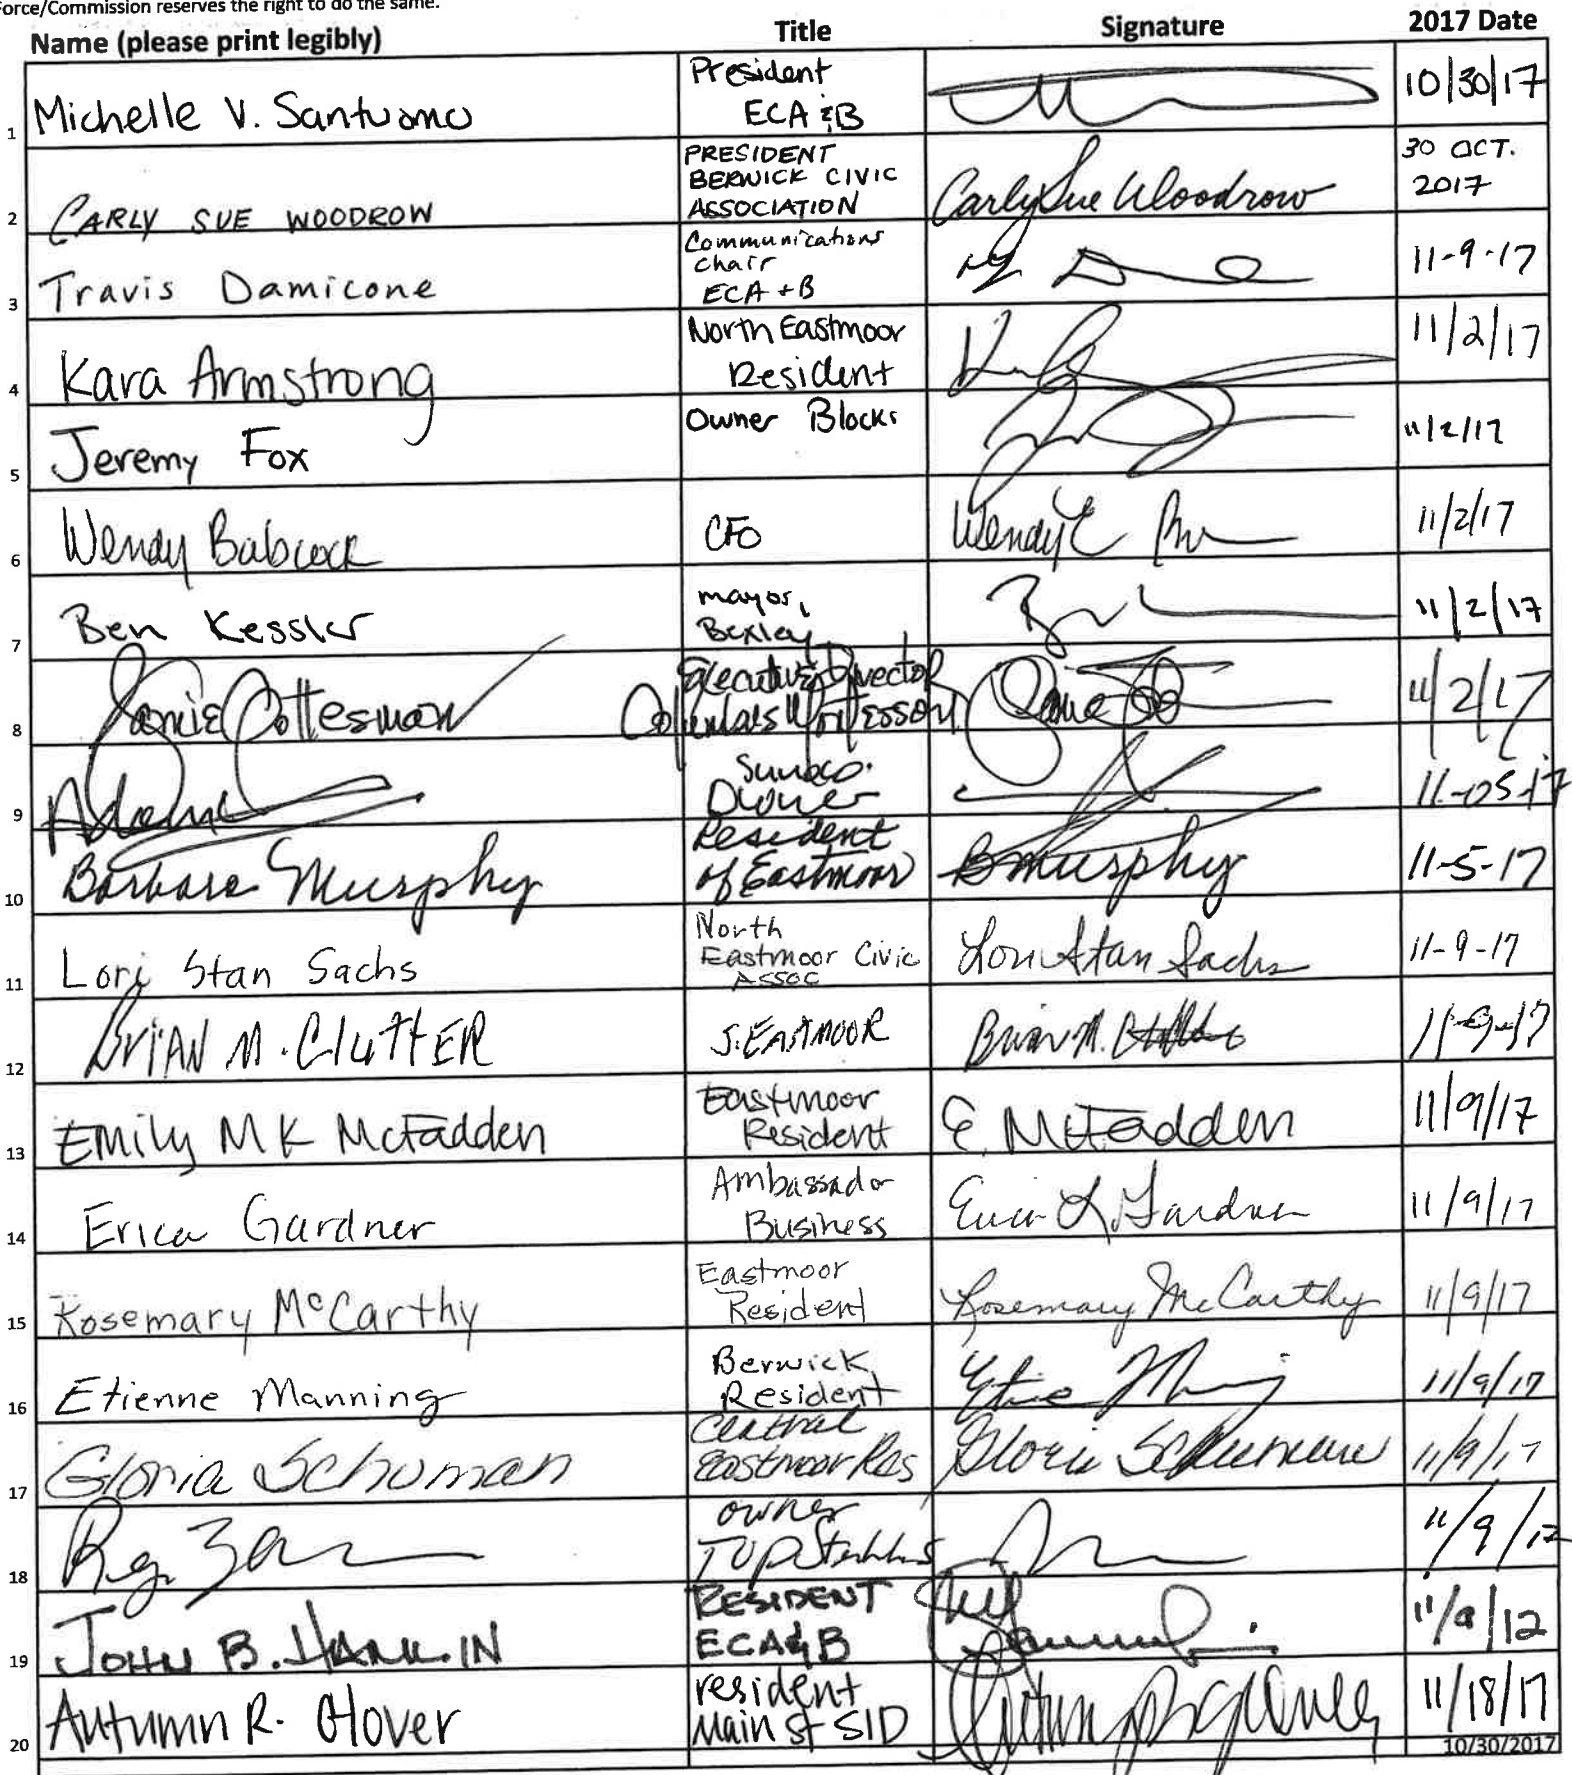 Force/Commission reserves the right to do the same.
Name (please print legibly) Title Signature 2017 Date
1 Michelle V. Santuomo President ECA & B 10/30/17
2 CARLY SUE WOODROW PRESIDENT BERWICK CIVIC ASSOCIATION Carly Sue Woodrow 30 OCT. 2017
3 Travis Damicone Communications Chair ECA + B 11-9-17
4 Kara Armstrong North Eastmoor Resident 11/2/17
5 Jeremy Fox Owner Blocks 11/2/17
6 Wendy Babcock CFO Wendy E 11/2/17
7 Ben Kessler mayor, Bexley 11/2/17
8 Jamie Gottesman Executive Director Columbus Montessori 11/2/17
9 Adam Sunoco Owner 11-05-17
10 Barbara Murphy Resident of Eastmoor B Murphy 11-5-17
11 Lori Stan Sachs North Eastmoor Civic Assoc Lori Stan Sachs 11-9-17
12 BRIAN M. ClUTTER S. EASTMOOR Brian M. 11-9-17
13 Emily MK McFadden Eastmoor Resident E. McFadden 11/9/17
14 Erica Gardner Ambassador Business Erica L Gardner 11/9/17
15 Rosemary McCarthy Eastmoor Resident Rosemary McCarthy 11/9/17
16 Etienne Manning Berwick Resident 11/9/17
17 Gloria Schuman Central Eastmoor Res Gloria Schuman 11/9/17
18 owner TOP 11/9/17
19 JOHN B. HANKIN RESIDENT ECA & B 11/9/12
20 Autumn R. Glover resident Main St SID 11/18/17
10/30/2017